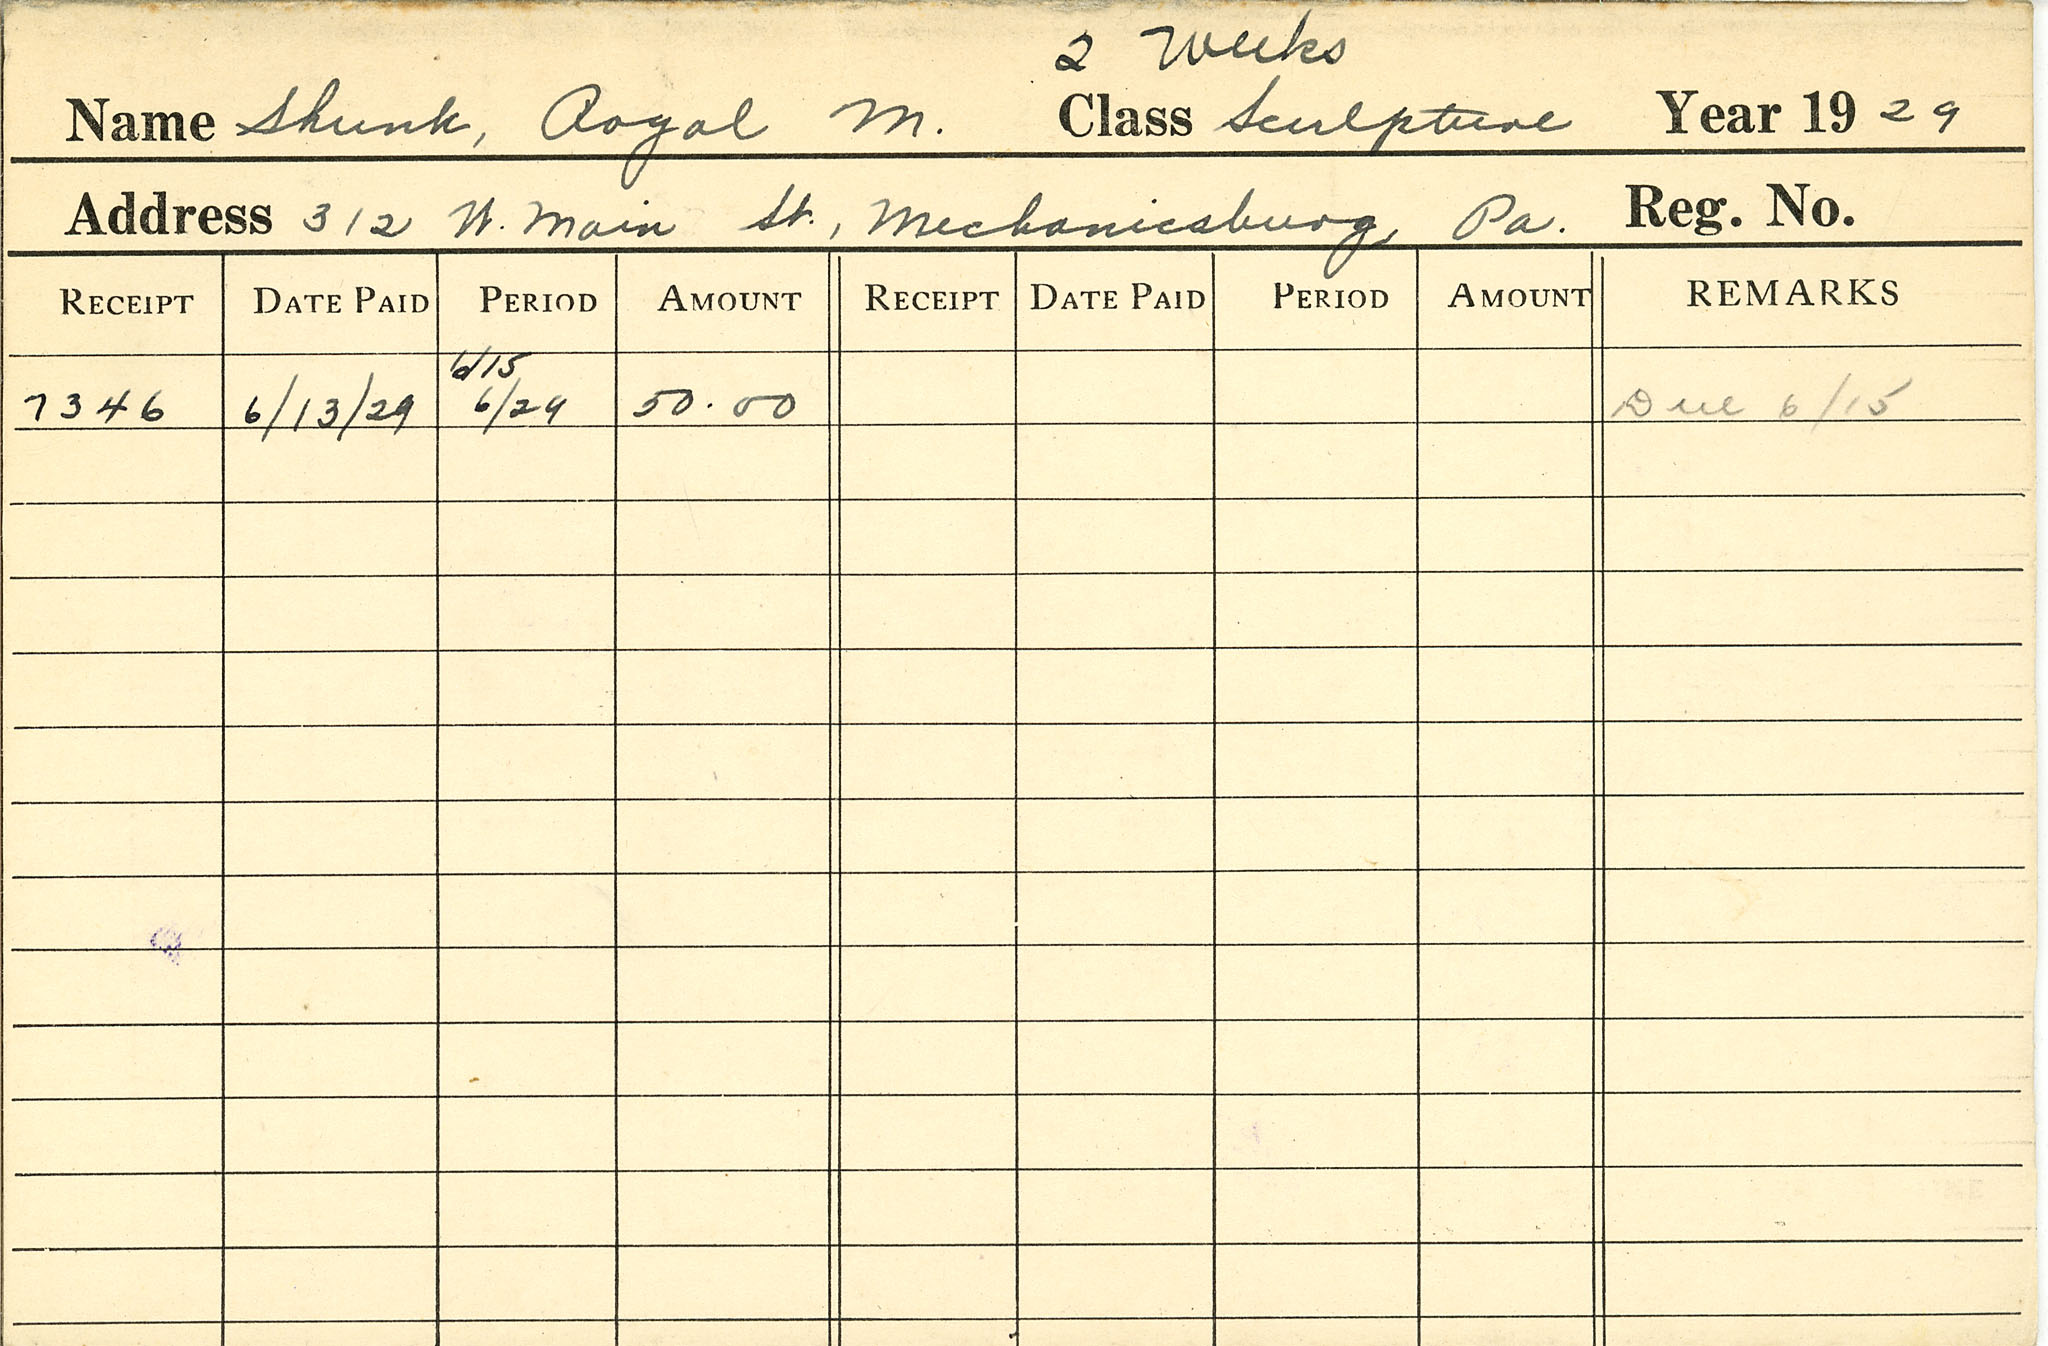 2 Weeks
Name Shunk, Royal M. Class Sculpture Year 19 29
Address 312 W. Main St., Mechanicsburg, Pa. Reg. No.
RECEIPT DATE PAID PERIOD AMOUNT RECEIPT DATE PAID PERIOD AMOUNT REMARKS
6/15
7346 6/13/29 6/29 50.00 Due 6/15